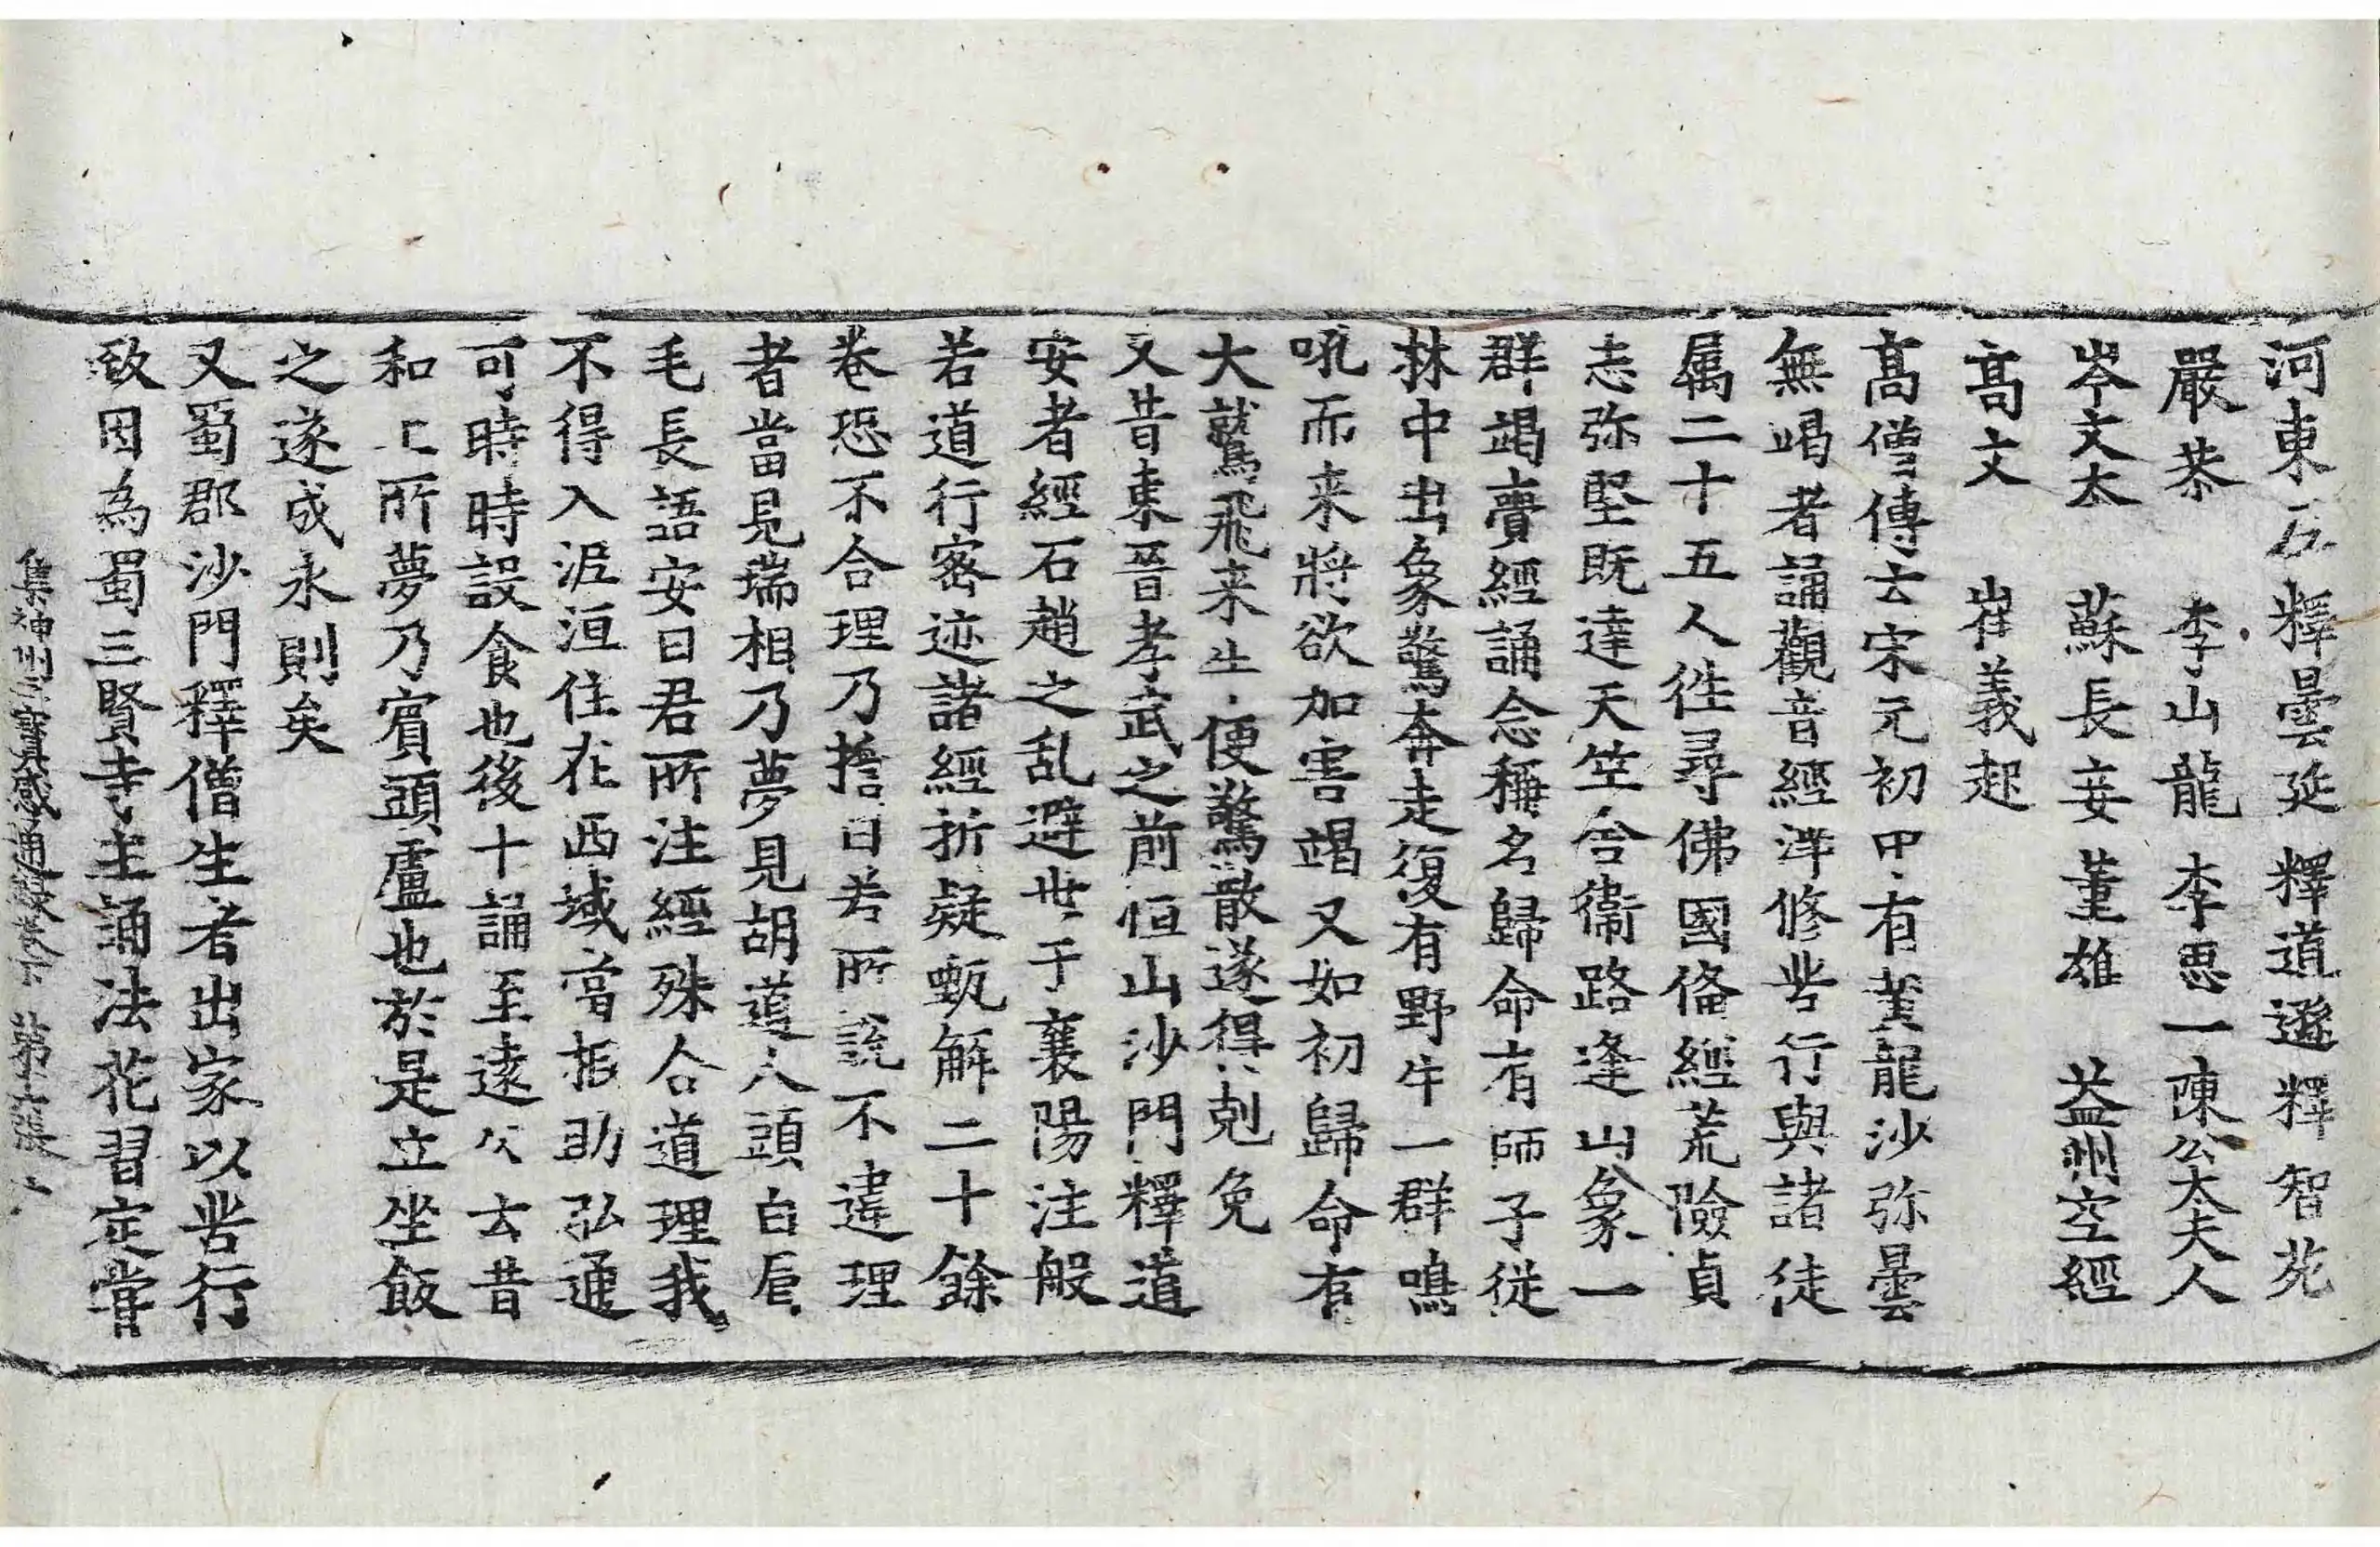 河東尼　釋曇延　釋道遜　釋智苑
嚴恭　李山龍　李思一　陳公太夫人
岑文本　蘇長妾　董雄　益州空經
高文　崔義起
髙僧傳云宋元初中有黃龍沙弥曇
無竭者誦觀音經淨修苦行與諸徒
属二十五人徃尋佛國俻經荒險貞
志弥堅既達天竺舍衞路逢山象一
群竭賷經誦念稱名歸命有師子從
林中出象驚奔走復有野牛一群鳴
吼而来將欲加害竭又如初歸命有
大鷲飛来牛便驚散遂得剋免
又昔東晉孝武之前恒山沙門釋道
安者經石趙之乱避世于襄陽注般
若道行密迹諸經折疑甄解二十餘
巻恐不合理乃擔曰若所說不違理
者當見瑞相乃夢見胡道人頭白眉
毛長語安曰君所注經殊合道理我
不得入泥洹住在西域當相助弘通
可時時設食也後十誦至遠公云昔
和上所夢乃賓頭盧也於是立坐飯
之遂成永則矣
又蜀郡沙門釋僧生者出家以苦行
致因為蜀三賢寺主誦法花習定嘗
集神州三寶感通録卷下　第十張